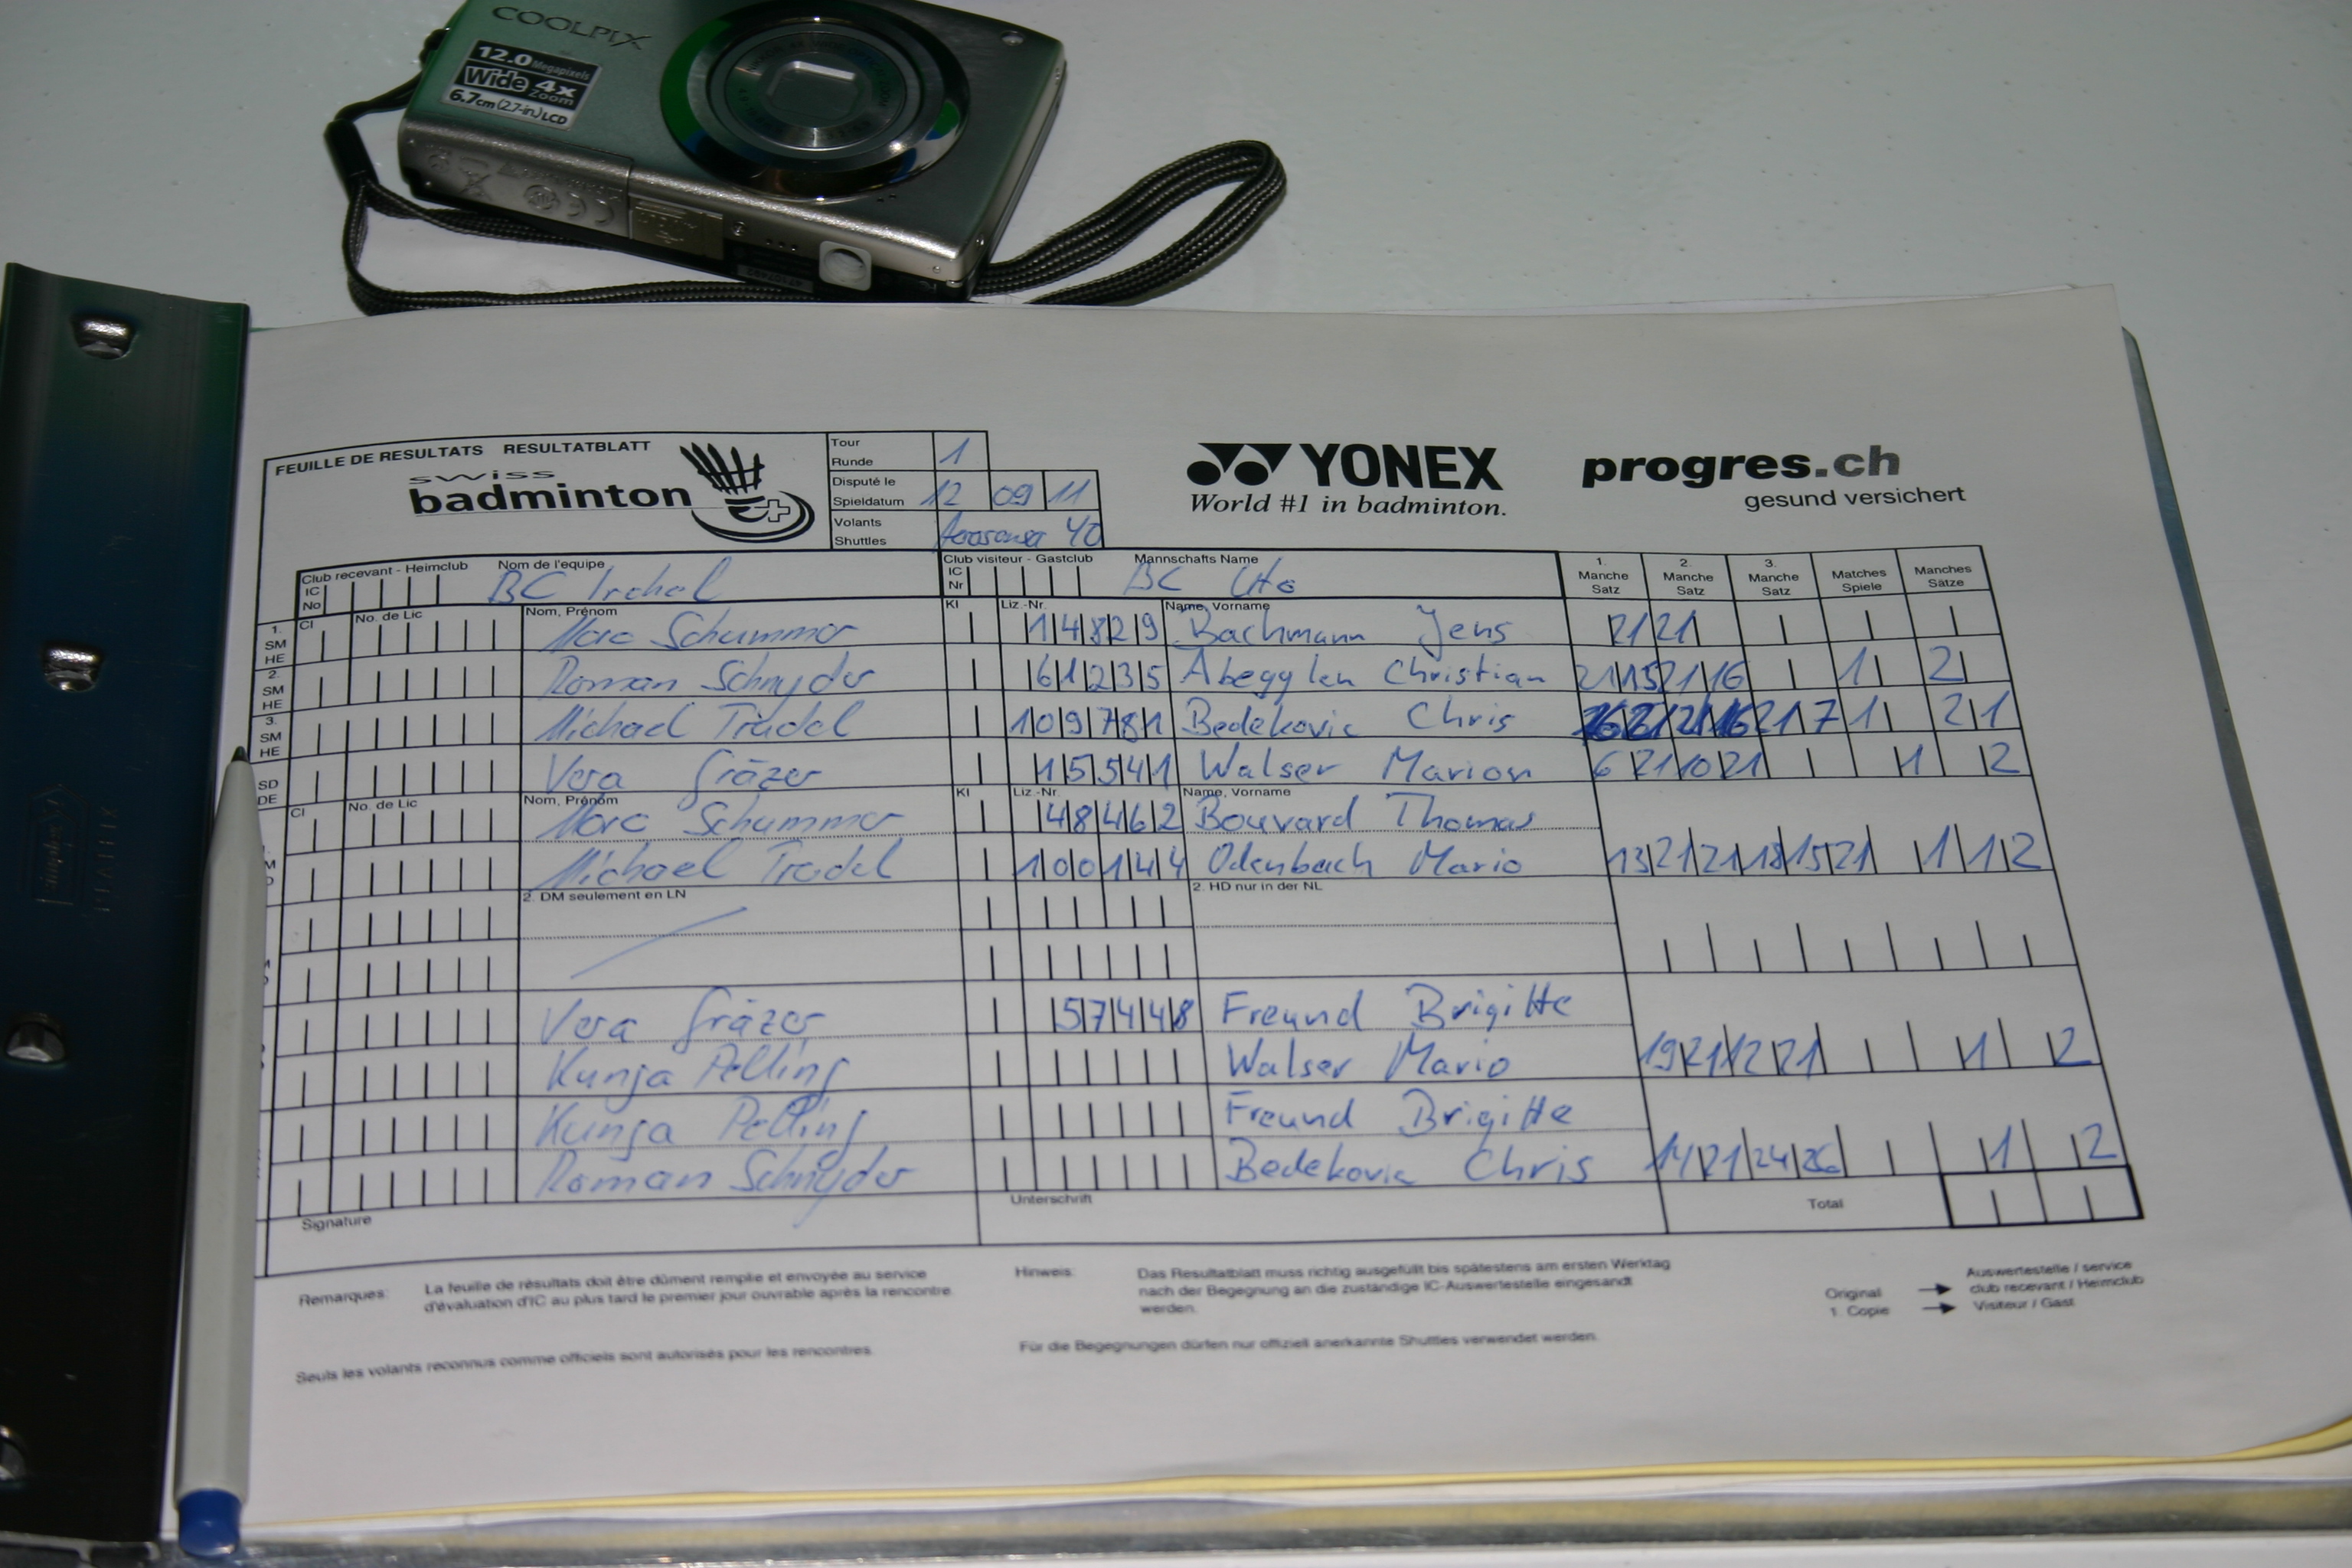 COOLPIX
12.0 Megapixels
Wide 4x Zoom
6.7cm (2.7-in.) LCD
FEUILLE DE RESULTATS RESULTATBLATT
swiss
badminton
Tour
Runde
1
Disputé le
Spieldatum
12 09 11
Volants
Shuttles
40
YONEX
World #1 in badminton.
progres.ch
gesund versichert
Club recevant - Heimclub Nom de l'equipe
IC
No
BC Irchel
Club visiteur - Gastclub Mannschafts Name
IC
Nr
BC
1. Manche Satz
2. Manche Satz
3. Manche Satz
Matches Spiele
Manches Sätze
CI No. de Lic Nom, Prénom KI Liz.-Nr. Name, Vorname
1. SM HE Marc Schummer 14829 Bachmann Jens 21 21
2. SM HE Roman Schnyder 61235 Abegglen Christian 21 15 21 16 1 2
3. SM HE Michael Tradel 109781 Bedekovic Chris 21 17 1 2 1
SD DE Vera Gräzer 15541 Walser Marion 6 21 10 21 1 2
CI No. de Lic Nom, Prénom KI Liz.-Nr. Name, Vorname
Marc Schummer 48462 Bouvard Thomas
Michael Tradel 100144 Odenbach Mario 13 21 21 18 15 21 1 1 2
2. DM seulement en LN 2. HD nur in der NL
Vera Gräzer 57448 Freund Brigitte
Kunga Pelling Walser Mario 19 21 12 21 1 2
Kunga Pelling Freund Brigitte
Roman Schnyder Bedekovic Chris 14 21 24 26 1 2
Signature Unterschrift Total
Remarques: La feuille de résultats doit être dûment remplie et envoyée au service
d'évaluation d'IC au plus tard le premier jour ouvrable après la rencontre.
Seuls les volants reconnus comme officiels sont autorisés pour les rencontres.
Hinweis: Das Resultatblatt muss richtig ausgefüllt bis spätestens am ersten Werktag
nach der Begegnung an die zuständige IC-Auswertestelle eingesandt
werden.
Für die Begegnungen dürfen nur offiziell anerkannte Shuttles verwendet werden.
Original → Auswertestelle / service
club recevant / Heimclub
1. Copie → Visiteur / Gast